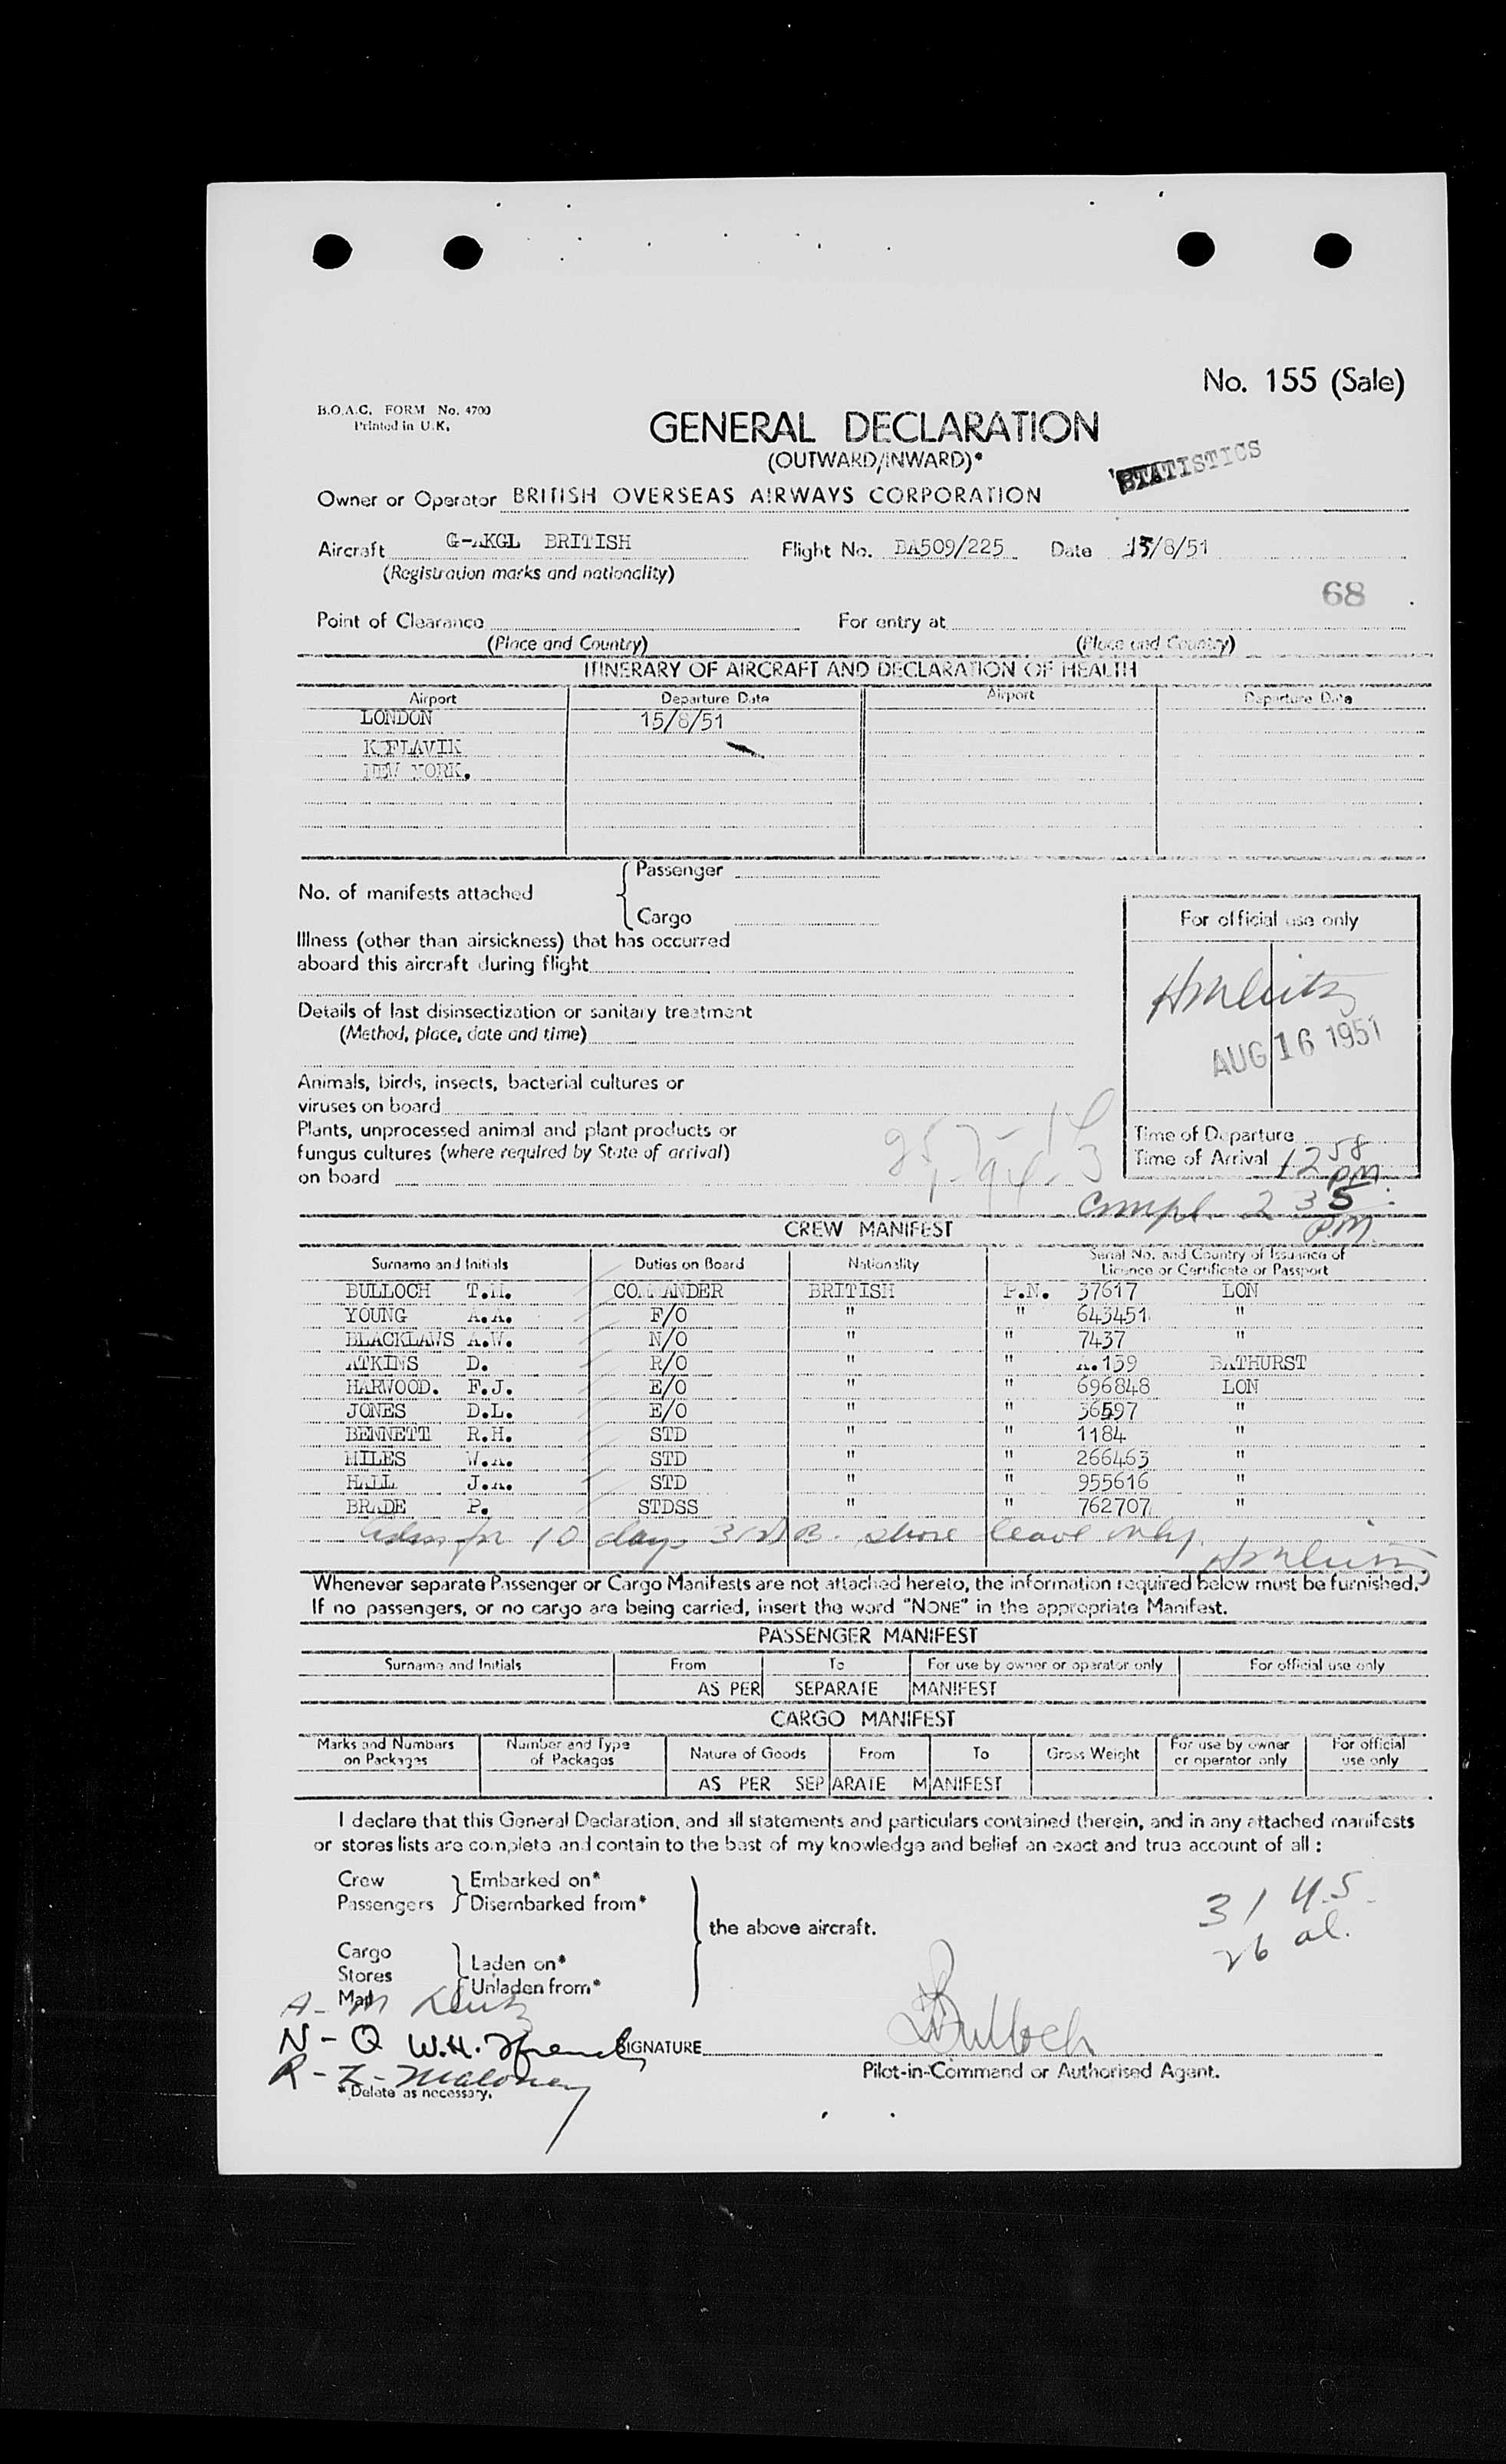 No. 155 (Sale)
B.O.A.C. FORM No. 4700
Printed in U.K.
GENERAL DECLARATION
(OUTWARD/INWARD)*
STATISTICS
Owner or Operator BRITISH OVERSEAS AIRWAYS CORPORATION
Aircraft G-AKGL BRITISH Flight No. BA509/225 Date 15/8/51
(Registration marks and nationality)
68
Point of Clearance For entry at
(Place and Country) (Place and Country)
ITINERARY OF AIRCRAFT AND DECLARATION OF HEALTH
Airport Departure Date Airport Departure Date
LONDON 15/8/51
KEFLAVIK
NEW YORK.
No. of manifests attached
Passenger
Cargo
For official use only
Illness (other than airsickness) that has occurred
aboard this aircraft during flight
Details of last disinsectization or sanitary treatment
(Method, place, date and time)
AUG 16 1951
Animals, birds, insects, bacterial cultures or
viruses on board
Plants, unprocessed animal and plant products or
fungus cultures (where required by State of arrival)
on board
Time of Departure
Time of Arrival 12 58 PM
Compl. 2 35 PM
CREW MANIFEST
Surname and Initials Duties on Board Nationality Serial No. and Country of Issuance of Licence or Certificate or Passport
BULLOCH T.M. COMMANDER BRITISH P.N. 37617 LON
YOUNG A.A. F/O " " 643451 "
BLACKLAWS A.W. N/O " " 7437 "
ATKINS D. R/O " " A.159 BATHURST
HARWOOD. F.J. E/O " " 696848 LON
JONES D.L. E/O " " 36597 "
BENNETT R.H. STD " " 1184 "
MILES W.A. STD " " 266463 "
HALL J.A. STD " " 955616 "
BRADE P. STDSS " " 762707 "
10 days shore leave only
Whenever separate Passenger or Cargo Manifests are not attached hereto, the information required below must be furnished.
If no passengers, or no cargo are being carried, insert the word "NONE" in the appropriate Manifest.
PASSENGER MANIFEST
Surname and Initials From To For use by owner or operator only For official use only
AS PER SEPARATE MANIFEST
CARGO MANIFEST
Marks and Numbers on Packages Number and Type of Packages Nature of Goods From To Gross Weight For use by owner or operator only For official use only
AS PER SEPARATE MANIFEST
I declare that this General Declaration, and all statements and particulars contained therein, and in any attached manifests
or stores lists are complete and contain to the best of my knowledge and belief an exact and true account of all :
Crew Embarked on*
Passengers Disembarked from*
the above aircraft.
31 U.S.
26 al.
Cargo
Stores Laden on*
Mail Unladen from*
A - M
N - Q W.H. French
R - Z - Maloney
SIGNATURE Bulloch
Pilot-in-Command or Authorised Agent.
* Delete as necessary.